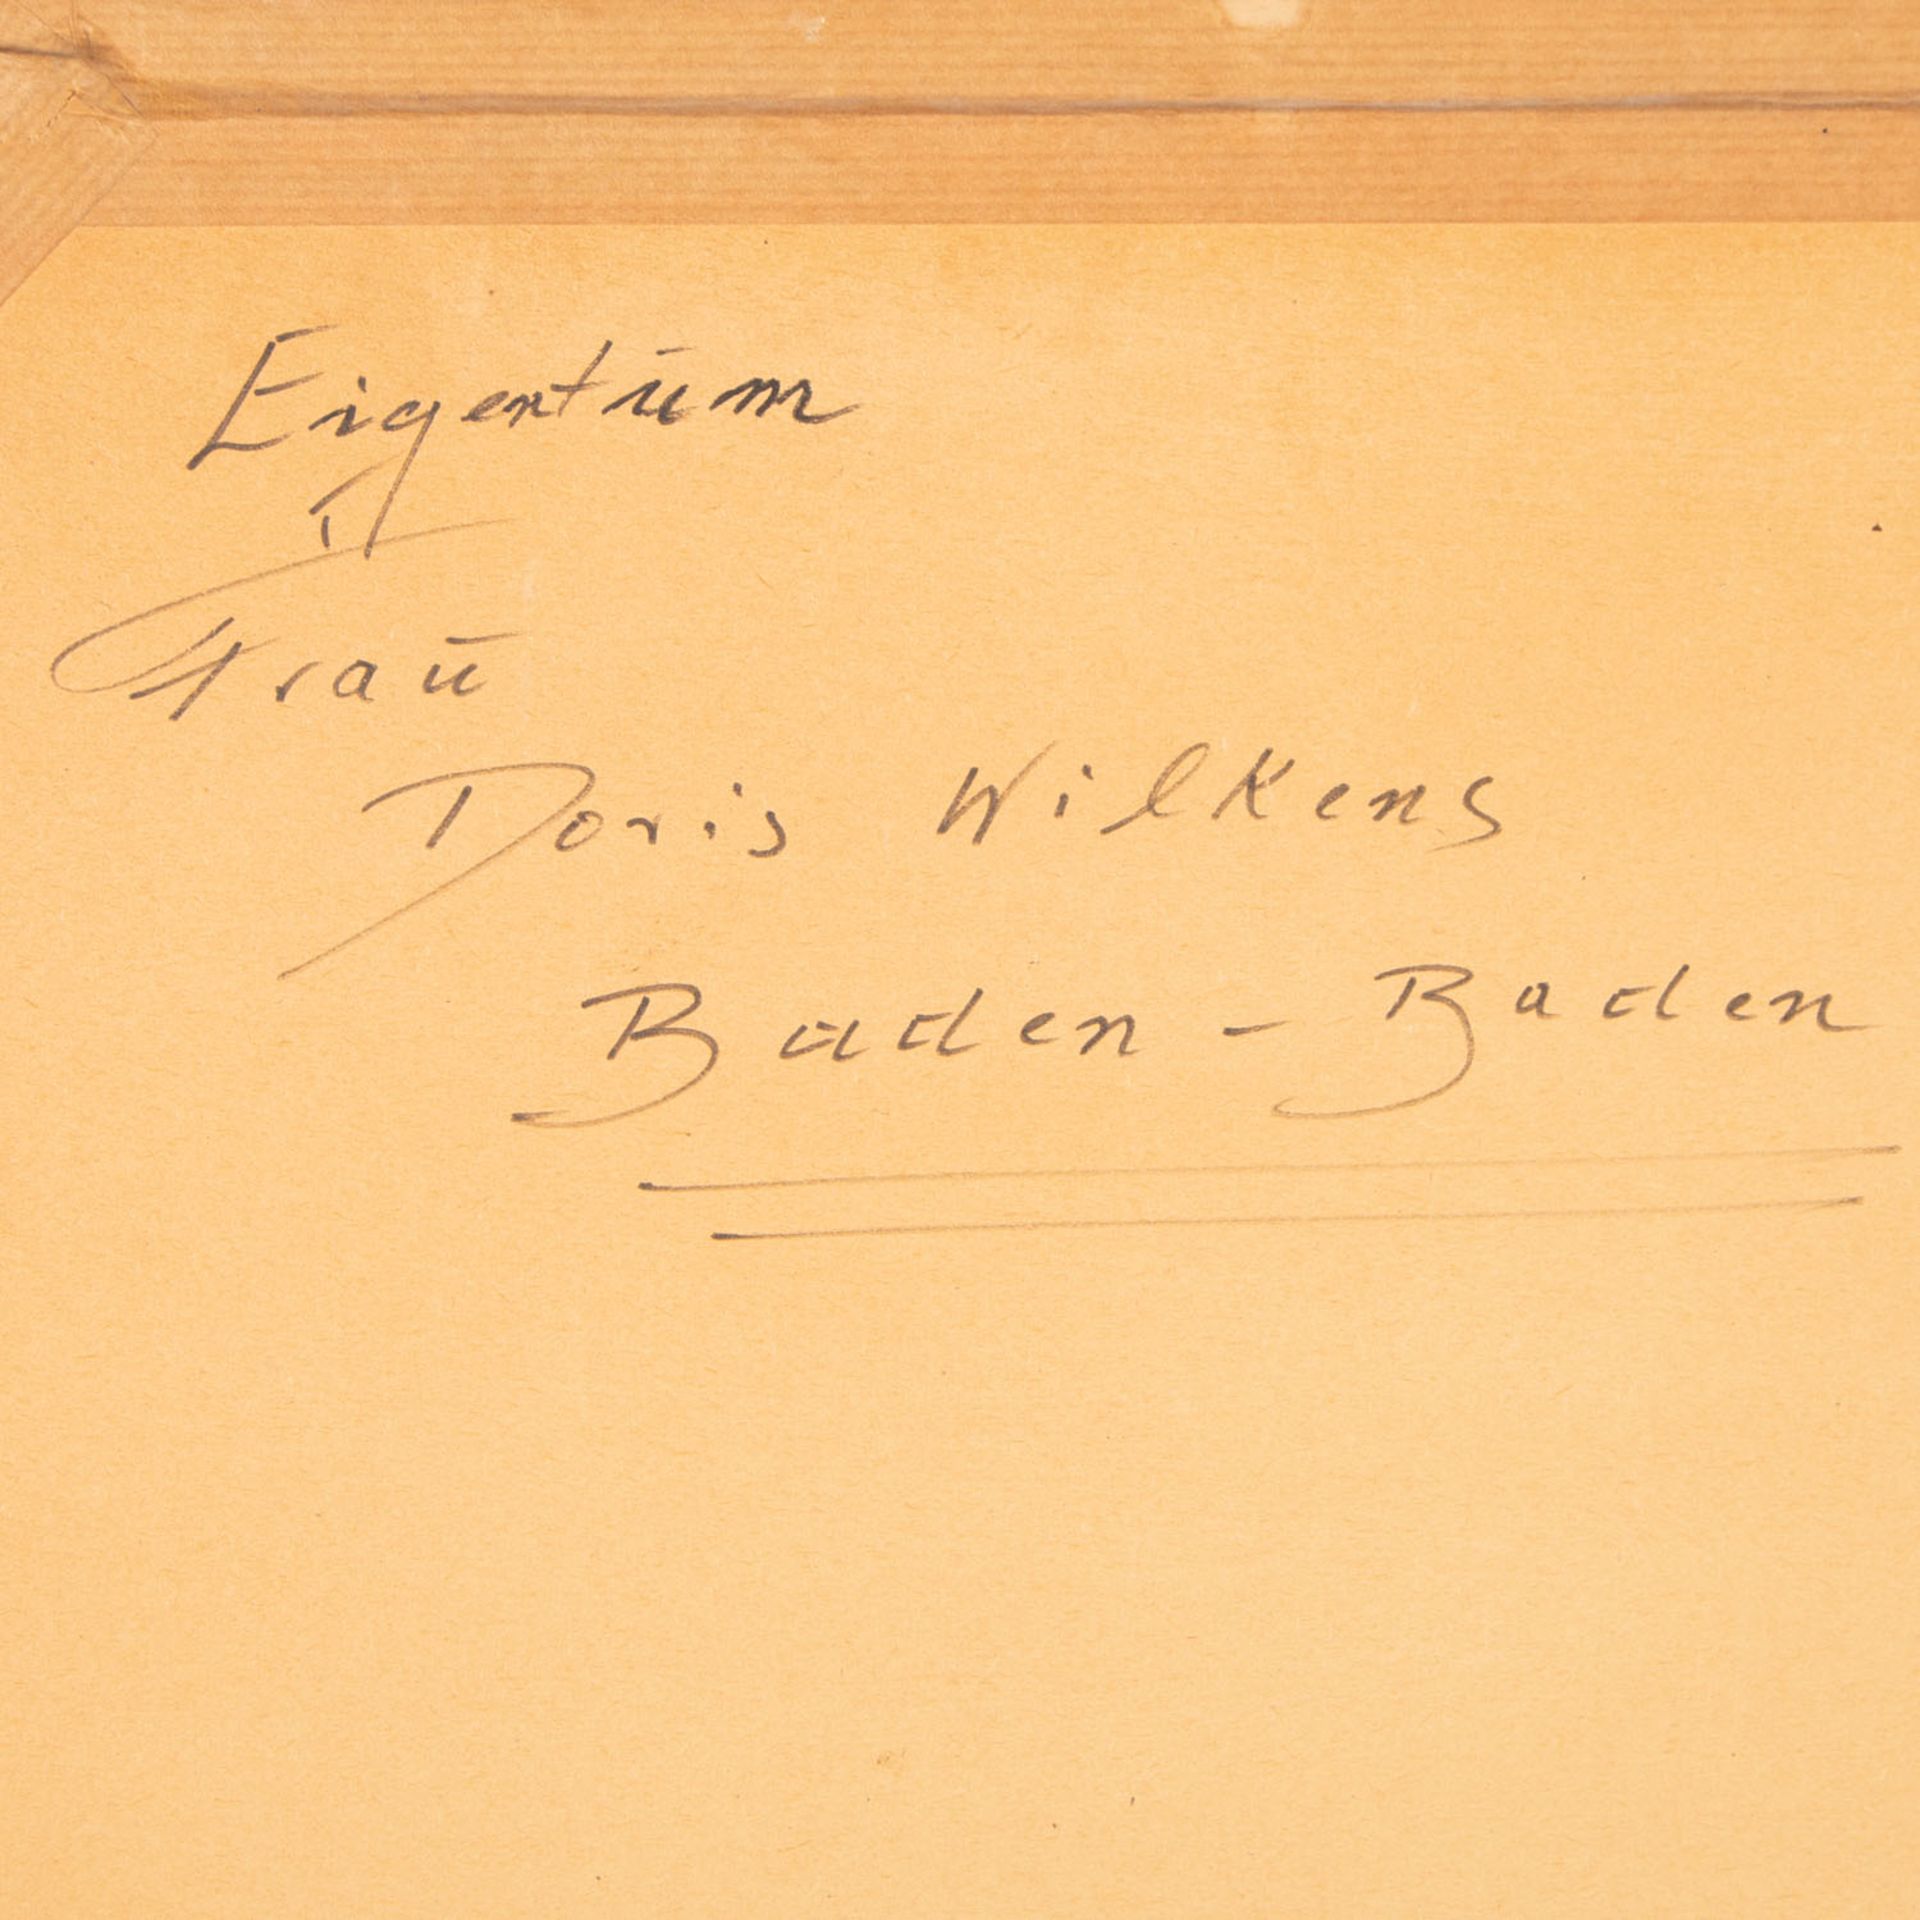 Eigentūm
Fraū
Doris Wilkens
Baden-Baden